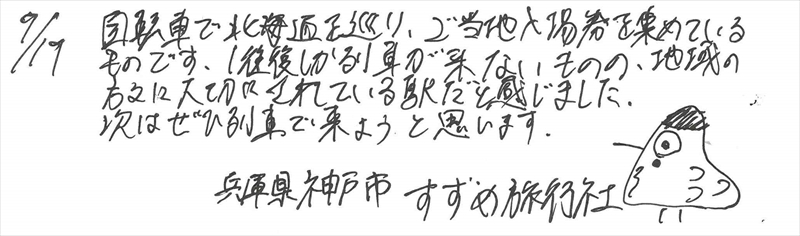 9/19
自転車で北海道を巡り、ご当地入場券を集めている
ものです。1往復しか列車が来ないものの、地域の
方々に大切にされている駅だと感じました。
次はぜひ列車で来ようと思います。
兵庫県神戸市 すずめ旅行社